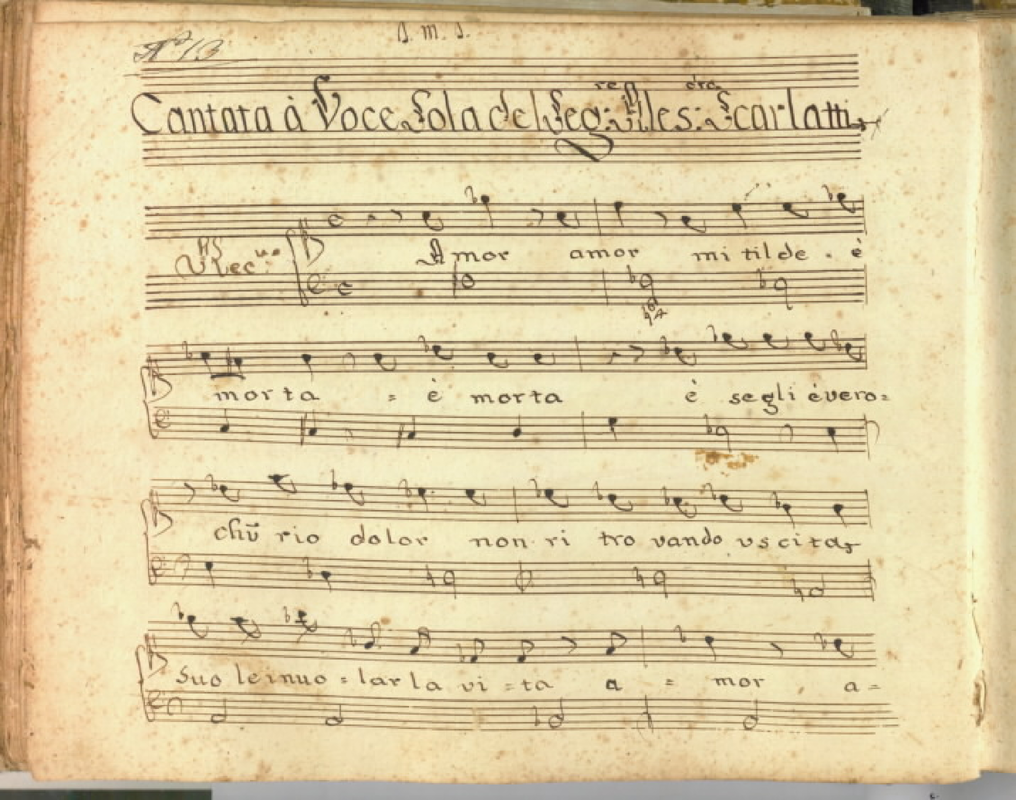 J. M. J.
N.º 13
Cantata à Voce Sola del Seg:re Ales: Scarlatti
Amor amor mi tilde . è
morta - è morta è segli è vero=
chū rio dolor non ri tro vando uscitar
Suo leinuo = lar la vi = ta a = mor a=